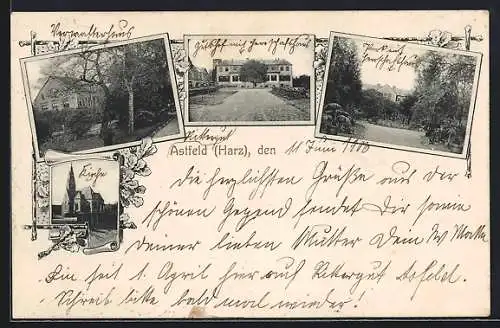 Verwalterhaus
Gutshof mit Herrschaftshaus
Park mit
Herrschaftshaus
Kirche
Rittergut
Astfeld (Harz), den 11 Juni
Die herzlichsten Grüße aus der
schönen Gegend sendet Dir sowie
deiner lieben Mutter Dein W.
Bin seit 1. April hier auf Rittergut Astfeld.
Schreib bitte bald mal wieder!